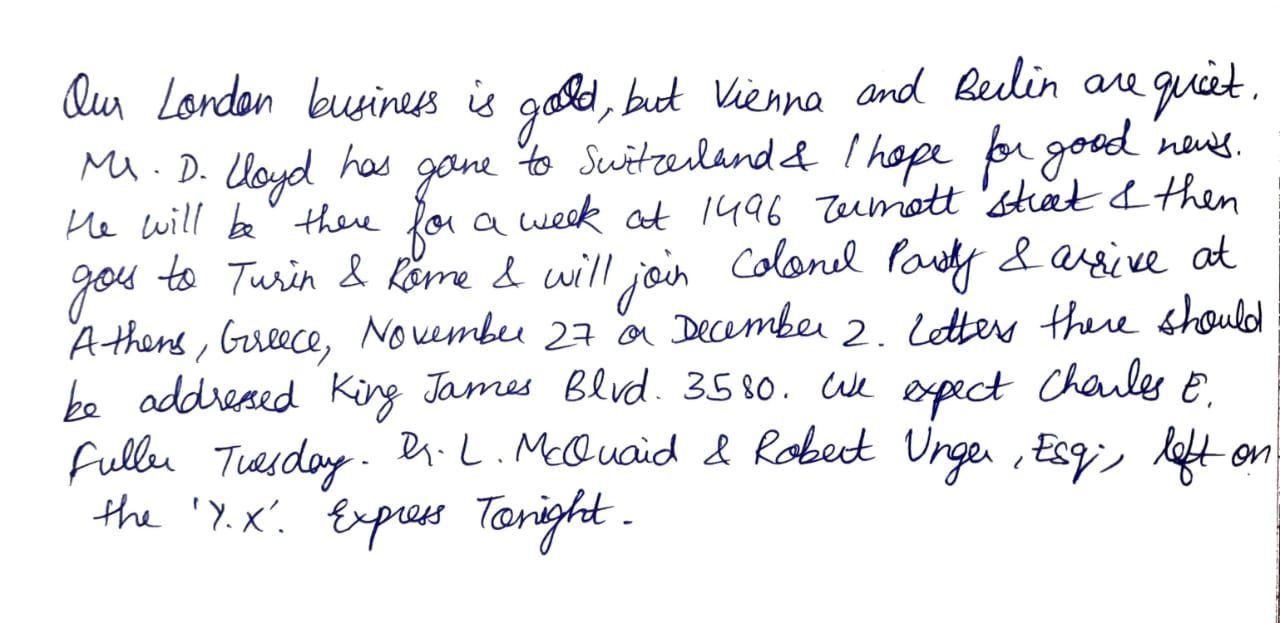 Our London business is good, but Vienna and Berlin are quiet.
Mr. D. Lloyd has gone to Switzerland & I hope for good news.
He will be there for a week at 1496 Zermott Street & then
goes to Turin & Rome & will join Colonel Pardy & arrive at
Athens, Greece, November 27 or December 2. Letters there should
be addressed King James Blvd. 3580. We expect Charles E.
Fuller Tuesday. Dr. L. McQuaid & Robert Unger, Esq., left on
the 'Y.X'. Express Tonight.